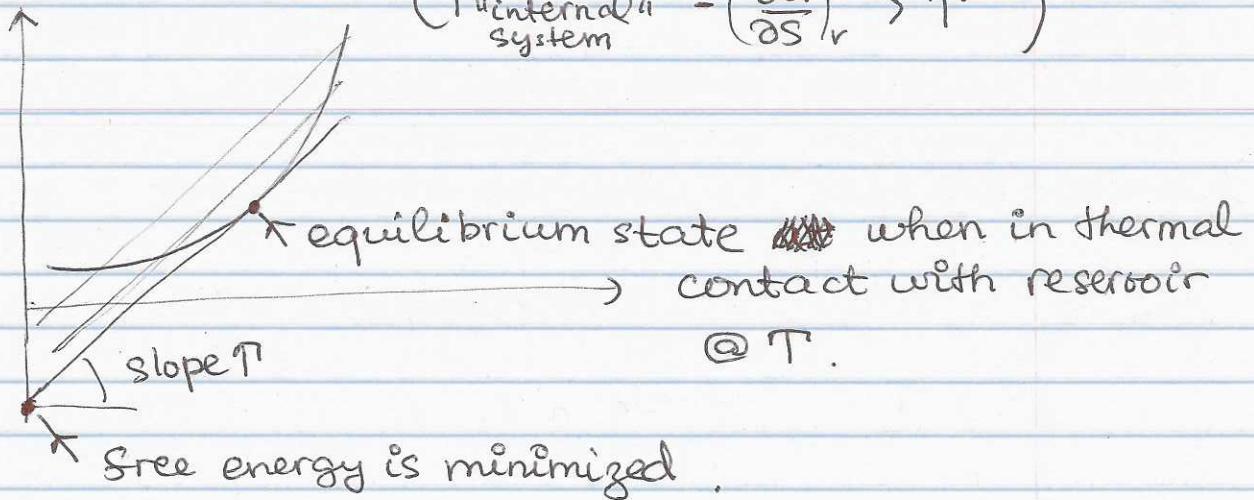 ( T "internal" system = (∂U/∂S)_V > T )
equilibrium state when in thermal
contact with reservoir
@ T.
slope T
free energy is minimized.